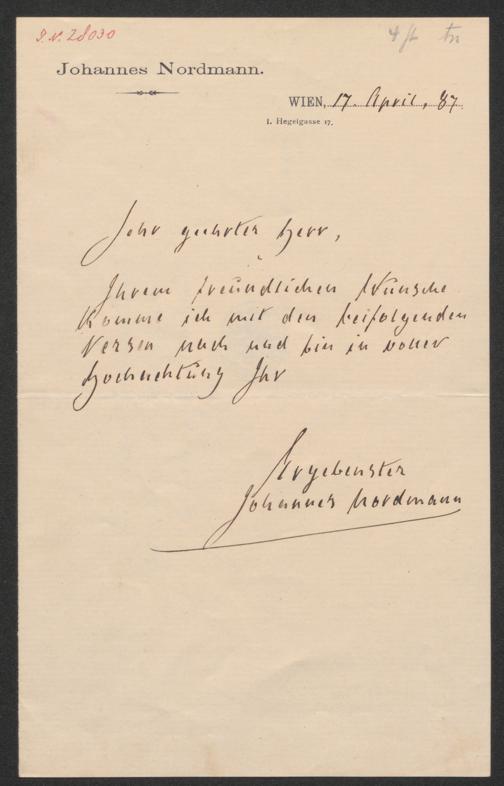 I.N. 28030
Johannes Nordmann.
WIEN, 17 April, 87
I. Hegelgasse 17.
Sehr geehrter Herr,
Ihrem freundlichen Wunsche
komme ich mit den beifolgenden
Versen nach und bin in voller
Hochachtung Ihr
Ergebenster
Johannes Nordmann